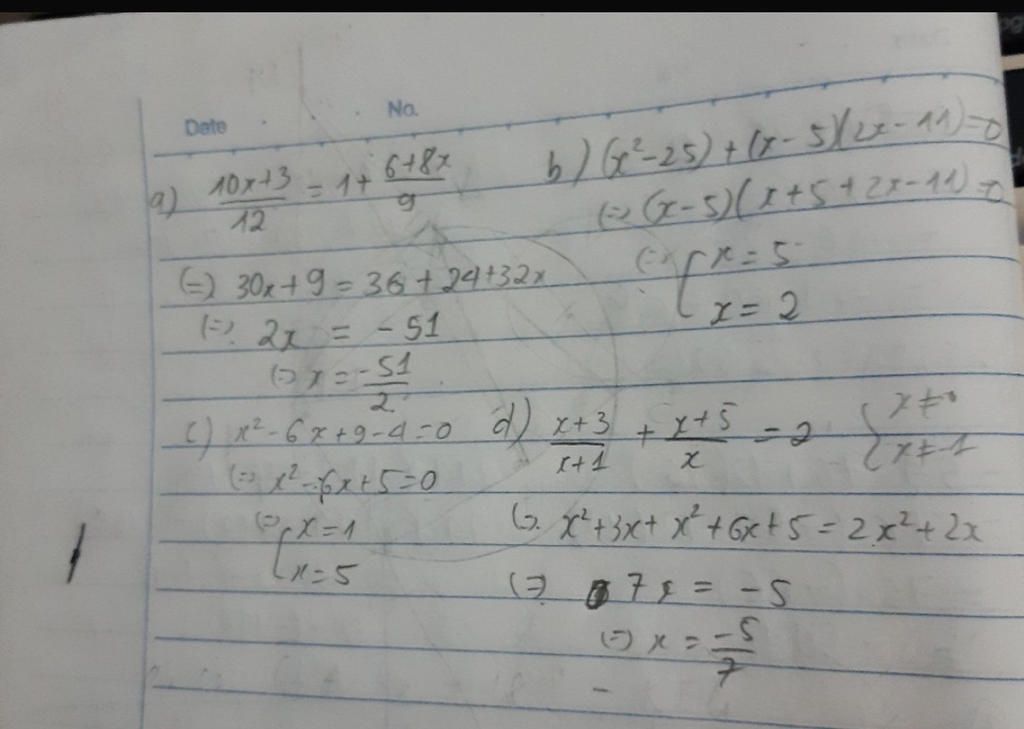 Date No.
a) (10x+3)/12 = 1 + (6+8x)/9
(=) 30x + 9 = 36 + 24 + 32x
(=) 2x = -51
(=) x = -51/2
b) (x² - 25) + (x - 5)(2x - 11) = 0
(=) (x - 5)(x + 5 + 2x - 11) = 0
(=) { x = 5
x = 2
c) x² - 6x + 9 - 4 = 0
(=) x² - 6x + 5 = 0
(=) [ x = 1
x = 5
d) (x+3)/(x+1) + (x+5)/x = 2 { x ≠ 0
x ≠ -1
(=) x² + 3x + x² + 6x + 5 = 2x² + 2x
(=) 7x = -5
(=) x = -5/7